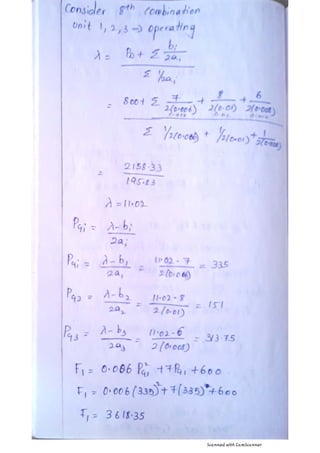 Consider 8th Combination
Unit 1, 2, 3 → operating
λ = PD + Σ bi/2ai
Σ 1/2ai
= 800 + Σ 7/2(0.006) + 8/2(0.01) + 6/2(0.008)
Σ 1/2(0.006) + 1/2(0.01) + 1/2(0.008)
= 2158.33
195.83
λ = 11.02
PGi = λ - bi
2ai
PG1 = λ - b1 / 2a1 = 11.02 - 7 / 2(0.006) = 335
PG2 = λ - b2 / 2a2 = 11.02 - 8 / 2(0.01) = 151
PG3 = λ - b3 / 2a3 = 11.02 - 6 / 2(0.008) = 313.75
F1 = 0.006 PG1² + 7PG1 + 600
F1 = 0.006(335)² + 7(335) + 600
F1 = 3618.35
Scanned with CamScanner